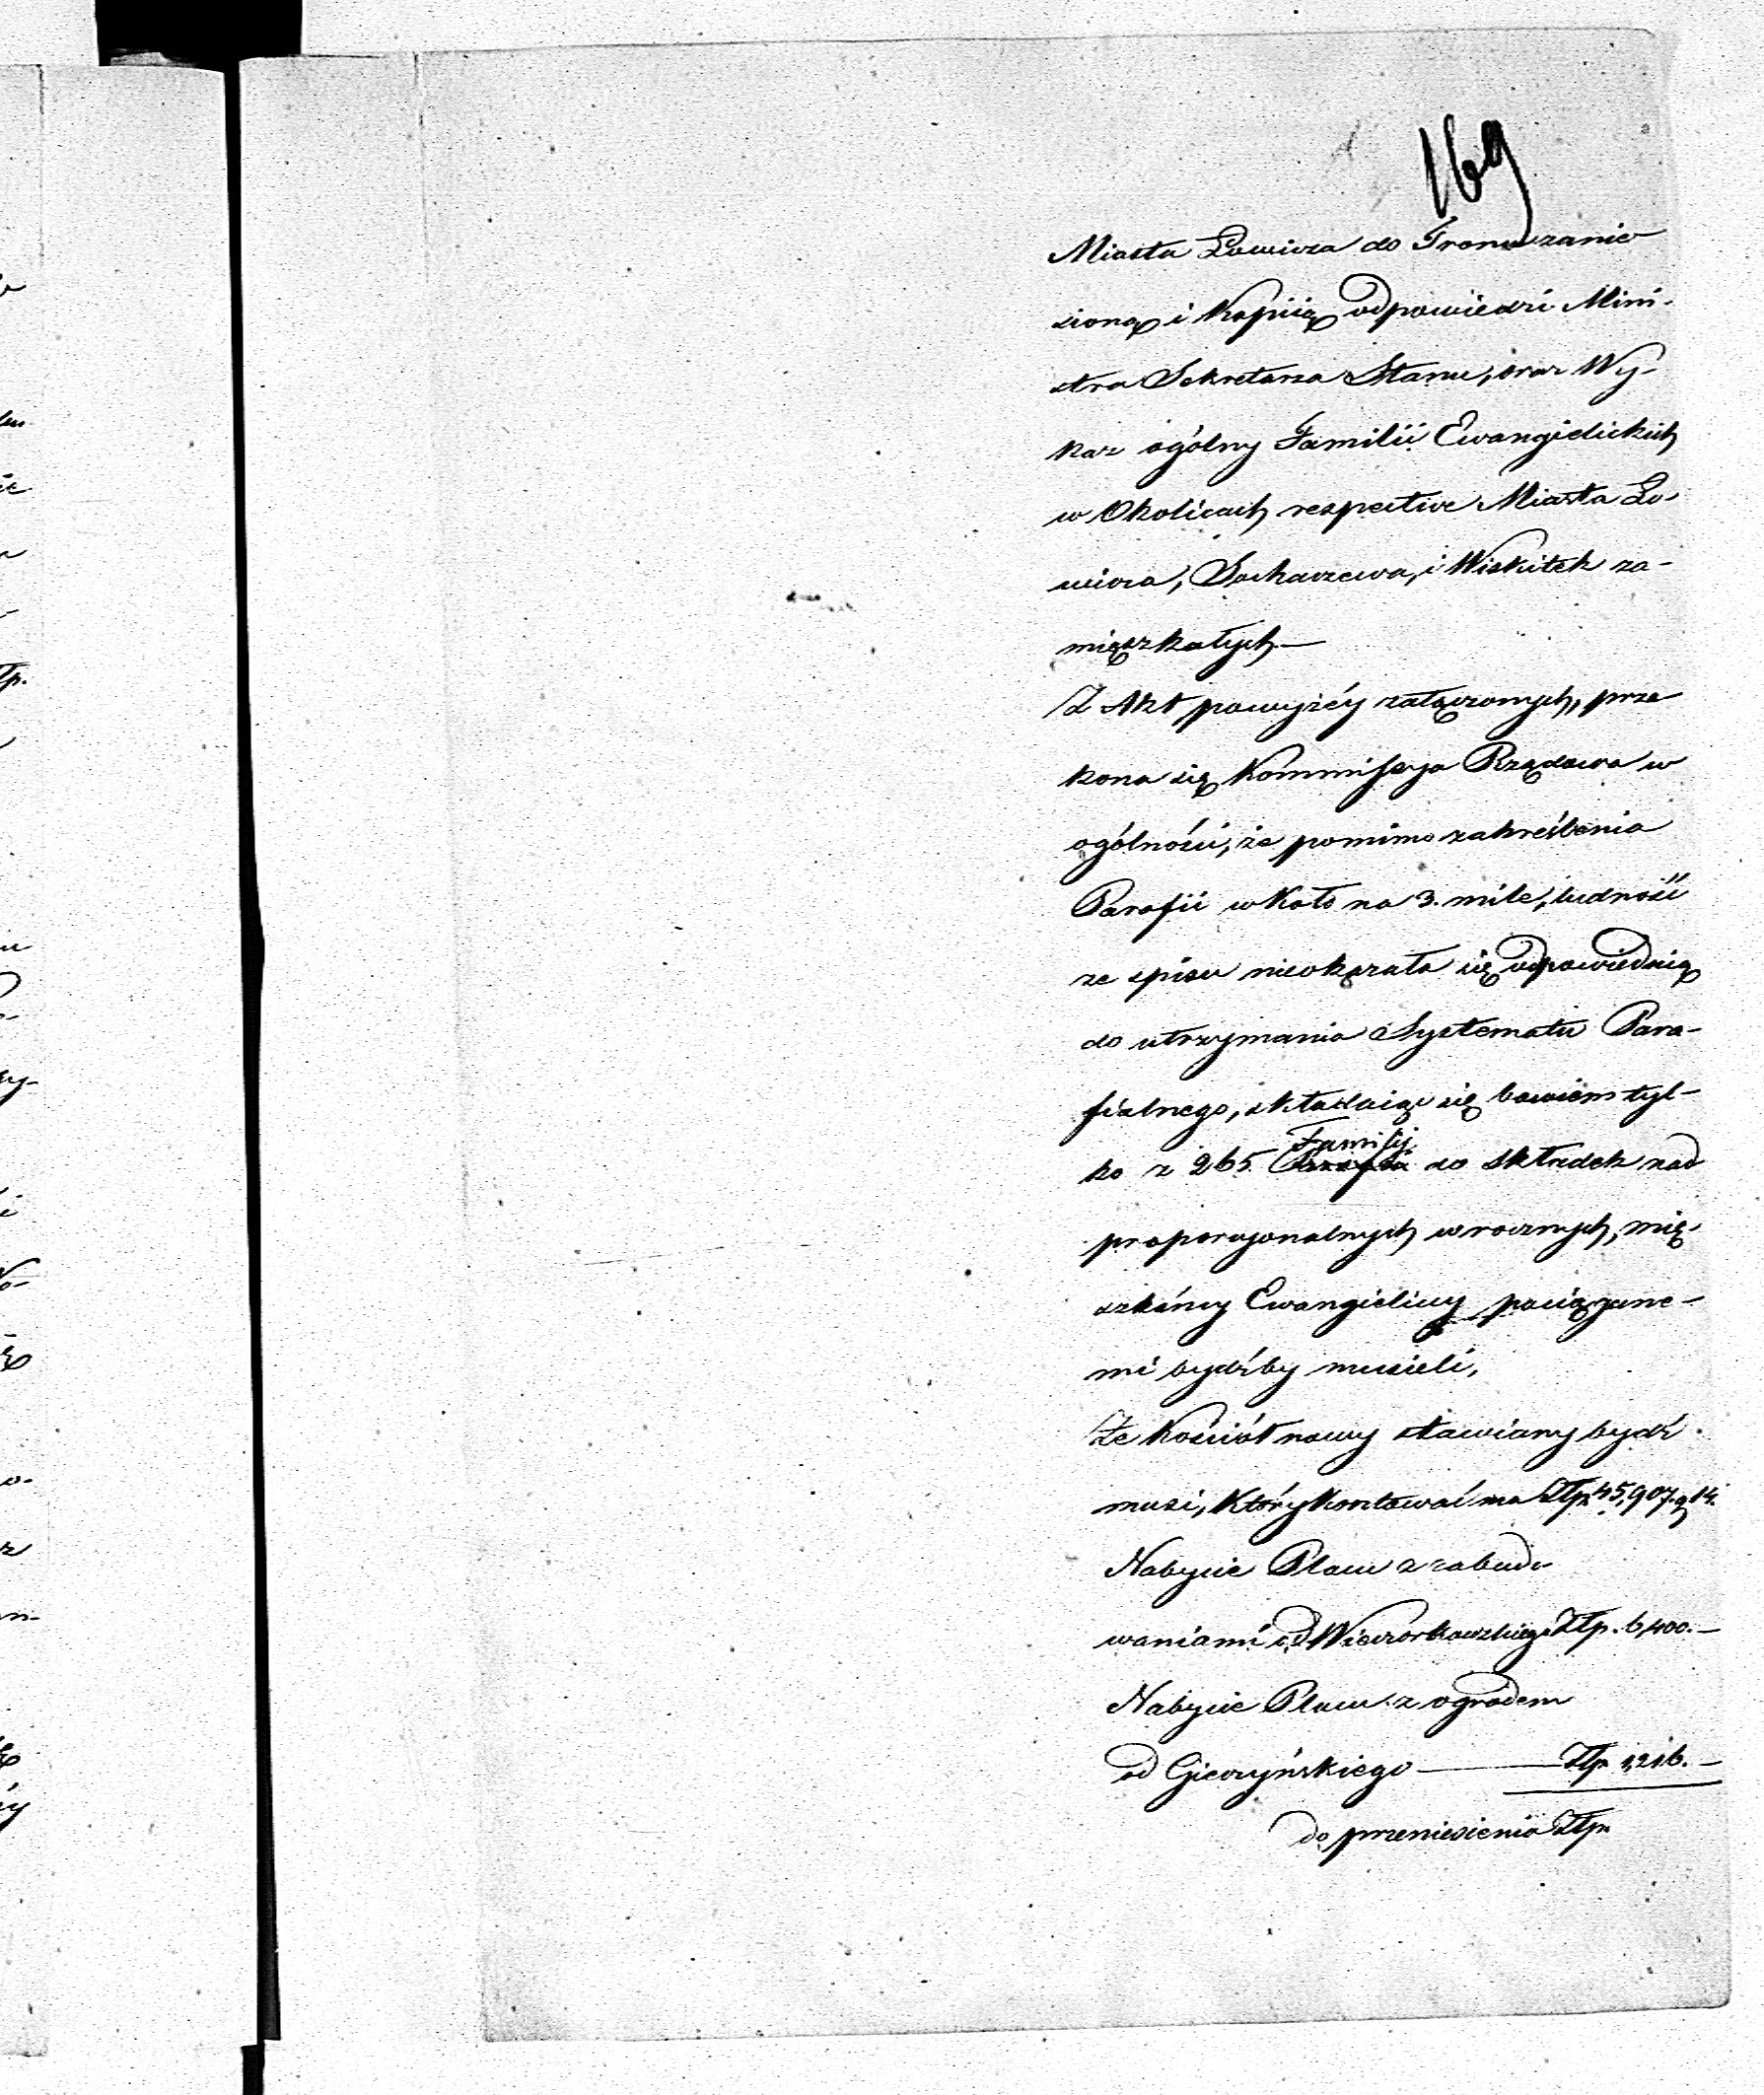 169
Miasta Łowicza do Tronu zanie
sioną i Kopiią odpowiedzi Mini-
stra Sekretarza Stanu, oraz Wy-
kaz ogólny Familii Ewangielickich
w Okolicach respective Miasta Ło-
wicza, Sochaczewa, i Wiskitek za-
mięszkałych —
Z Akt powyżéy załączonych, prze
kona się Kommissya Rządowa w
ogólności, że pomimo zakreślenia
Parafii w koło na 3. mile, ludność
ze spisu nieokazała się odpowiednią
do utrzymania Systematu Para-
fialnego, składaiąc się bowiem tyl-
ko z 265. Familij do składek nad
proporcyonalnych w rocznych, mię-
szkańcy Ewangieliccy pociągane-
mi bydźby musieli,
Że Kościół nowy stawiany bydź
musi, który kosztować ma Złp. 45,907. g 14.
Nabycie Placu z zabudo
waniami od Wieczorkowskiego Złp. 6400. —
Nabycie Placu z ogrodem
od Gieczyńskiego — Złp. 1,216. —
do przeniesienia Złp.